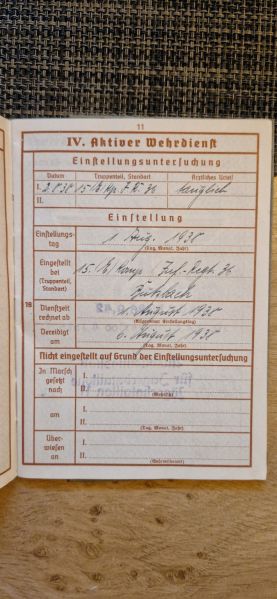 11
IV. Aktiver Wehrdienst
Einstellungsuntersuchung
Datum Truppenteil, Standort Ärztliches Urteil
I. 2.8.38 15.(E) Kp. J.R. 36 tauglich
II.
Einstellung
Einstellungstag 1. Aug. 1938
(Tag, Monat, Jahr)
Eingestellt bei 15.(E) Komp. Inf.-Regt. 36
(Truppenteil, Standort) Butzbach
18
Dienstzeit rechnet ab August 1938
Vereidigt am 6. August 1938
(Tag, Monat, Jahr)
Nicht eingestellt auf Grund der Einstellungsuntersuchung
In Marsch gesetzt nach I.
II.
am I.
II.
(Tag, Monat, Jahr)
Überwiesen an I.
II.